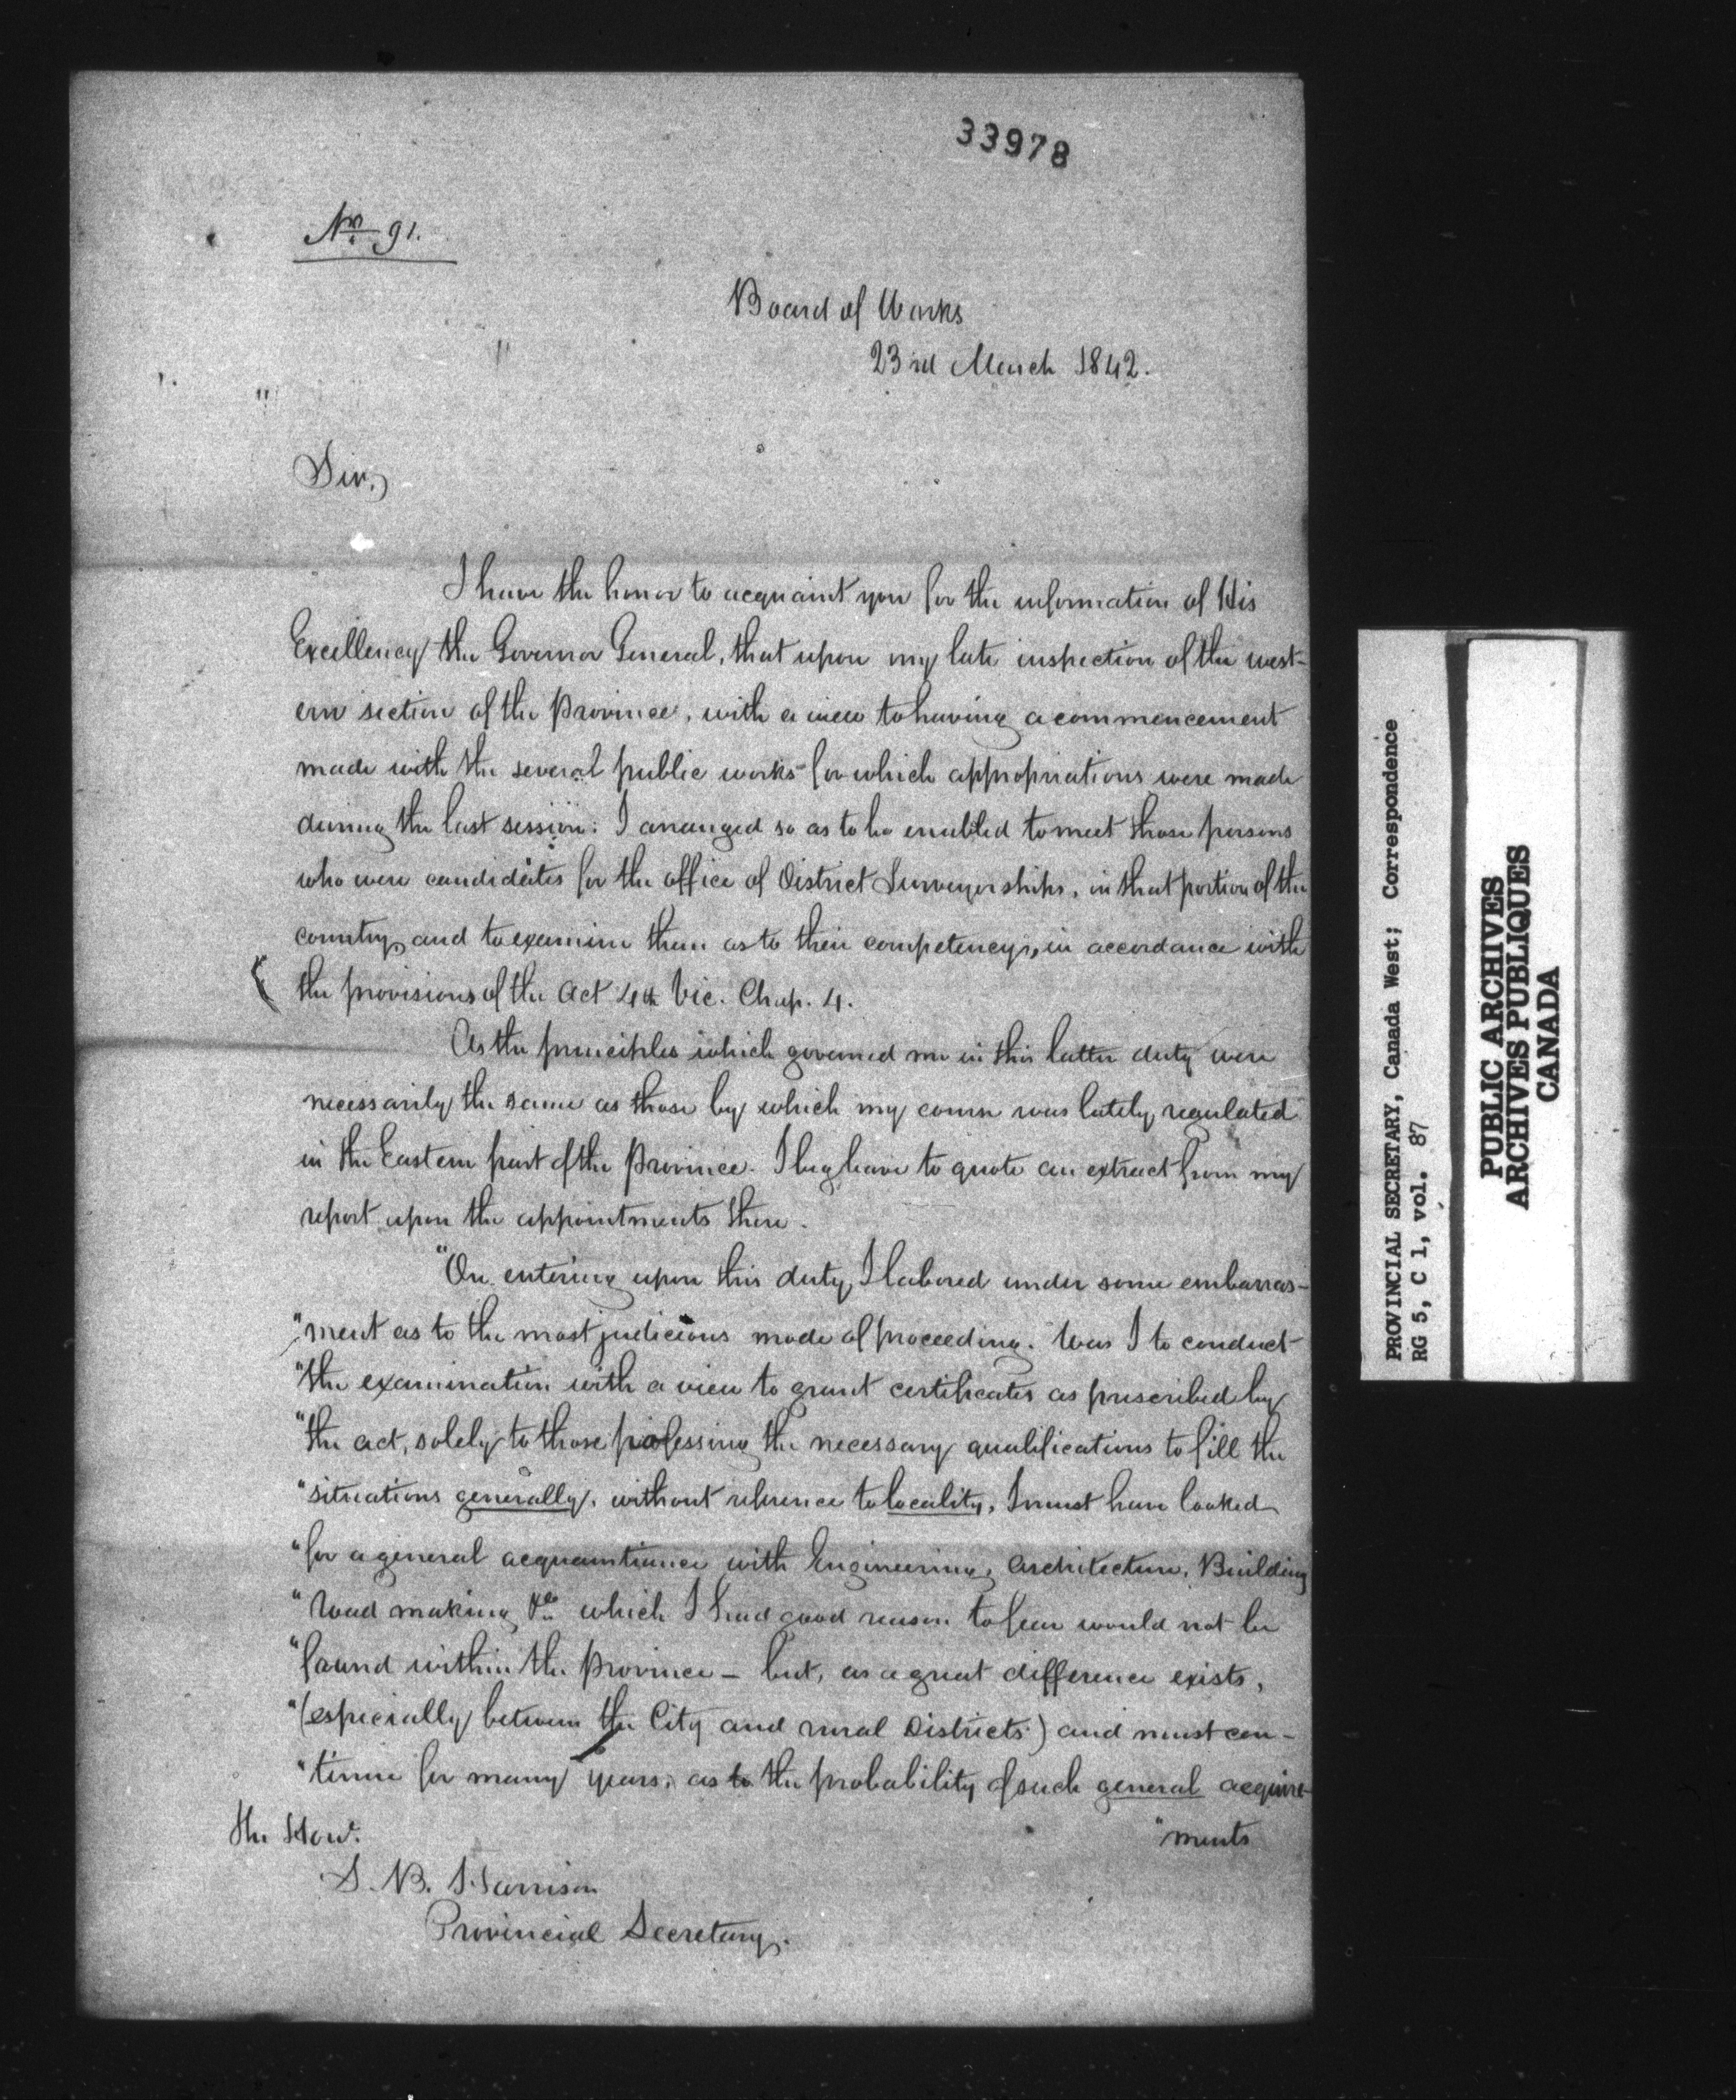 33978
No. 91.
Board of Works
23rd March 1842.
Sir,
I have the honor to acquaint you for the information of His
Excellency the Governor General, that upon my late inspection of the west-
ern section of the Province, with a view to having a commencement
made with the several public works for which appropriations were made
during the last session: I arranged so as to be enabled to meet those persons
who were candidates for the office of District Surveyorships, in that portion of the
country, and to examine them as to their competency, in accordance with
the provisions of the Act 4th Vic. Chap. 4.
As the principles which governed me in this latter duty were
necessarily the same as those by which my course was lately regulated
in the Eastern part of the Province. I beg leave to quote an extract from my
report upon the appointments there.
"On entering upon this duty, I labored under some embarras-
"ment as to the most judicious mode of proceeding. Was I to conduct
"the examination with a view to grant certificates as prescribed by
"the act, solely to those professing the necessary qualifications to fill the
"situations generally, without reference to locality, I must have looked
"for a general acquaintance with Engineering, Architecture, Building
"Road making &c which I had good reason to fear would not be
"found within the Province – but, as a great difference exists,
"(especially between the City and rural Districts) and must con-
"tinue for many years, as to the probability of such general acquire-
"ments
The Hon.
S. B. Harrison
Provincial Secretary.
PROVINCIAL SECRETARY, Canada West; Correspondence
RG 5, C 1, vol. 87
PUBLIC ARCHIVES
ARCHIVES PUBLIQUES
CANADA